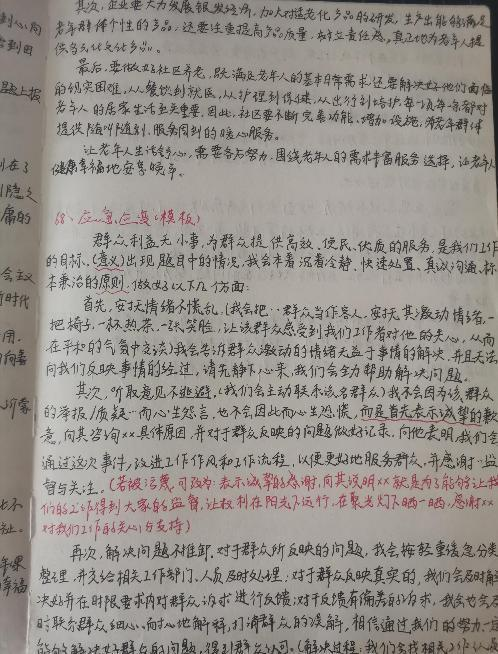 其次，企业要大力发展银发经济，加大对适老化产品的研发，生产出能够满足
老年群体个性的产品，还要注重提高产品质量，树立责任感，真正地为老年人提
供
最后，要做好社区养老，既满足老年人的基本日常需求，还要解决好他们面临
的现实困难，从餐饮到就医，从护理到保健，从出行到培护，每一项每一条都对
老年人的居家生活至关重要，因此，社区要不断完善功能、增加设施，为老年群体
提供随叫随到、服务周到的暖心服务。
让老年人生活舒心，需要各方努力，围绕老年人的需求丰富服务选择，让老年人
健康幸福地安享晚年。
68、应急应变（模板）
群众利益无小事，为群众提供高效、便民、优质的服务，是我们工作
的目标。（意义）出现题目中的情况，我会本着沉着冷静、快速处置、真诚沟通、标
本兼治的原则，做好以下几个方面：
首先，安抚情绪不慌乱。（我会把··群众当作客人，安抚其激动情绪，一
把椅子、一杯热茶、一张笑脸，让该群众感受到我们工作者对他的关心，从而
在平和的气氛中交谈）我会告诉群众激动的情绪无益于事情的解决，并且无法
向我们反映事情的经过，请先静下心来，我们会全力帮助解决问题。
其次，听取意见不逃避。（我们会主动联系该名群众）我不会因为该群众
的举报/质疑··而心生怨言，也不会因此而心生恐慌，而是首先表示诚挚的歉
意，向其咨询××具体原因，并对于群众反映的问题做好记录，向他表明，我们会
通过这次事件，改进工作作风和工作流程，以便更好地服务群众，并感谢··监
督与关注。（若被污蔑，可改为：表示诚挚的感谢，向其说明××就是为了能够让我
们的工作得到大家的监督，让权利在阳光下运行，在聚光灯下晒一晒，感谢××
对我们工作的关心与支持）
再次，解决问题不推卸。对于群众所反映的问题，我会按轻重缓急分类
整理，并交给相关工作部门、人员及时处理；对于群众反映真实的，我们会及时解
决好并在时限要求内对群众诉求进行反馈；对于反馈有偏差的诉求，我会也会及
时联系群众细心、耐心地解释，打消群众的误解，相信通过我们的努力一定
能够解决好群众的问题，得到群众认可。（解决过程：我们会找相关工作人员